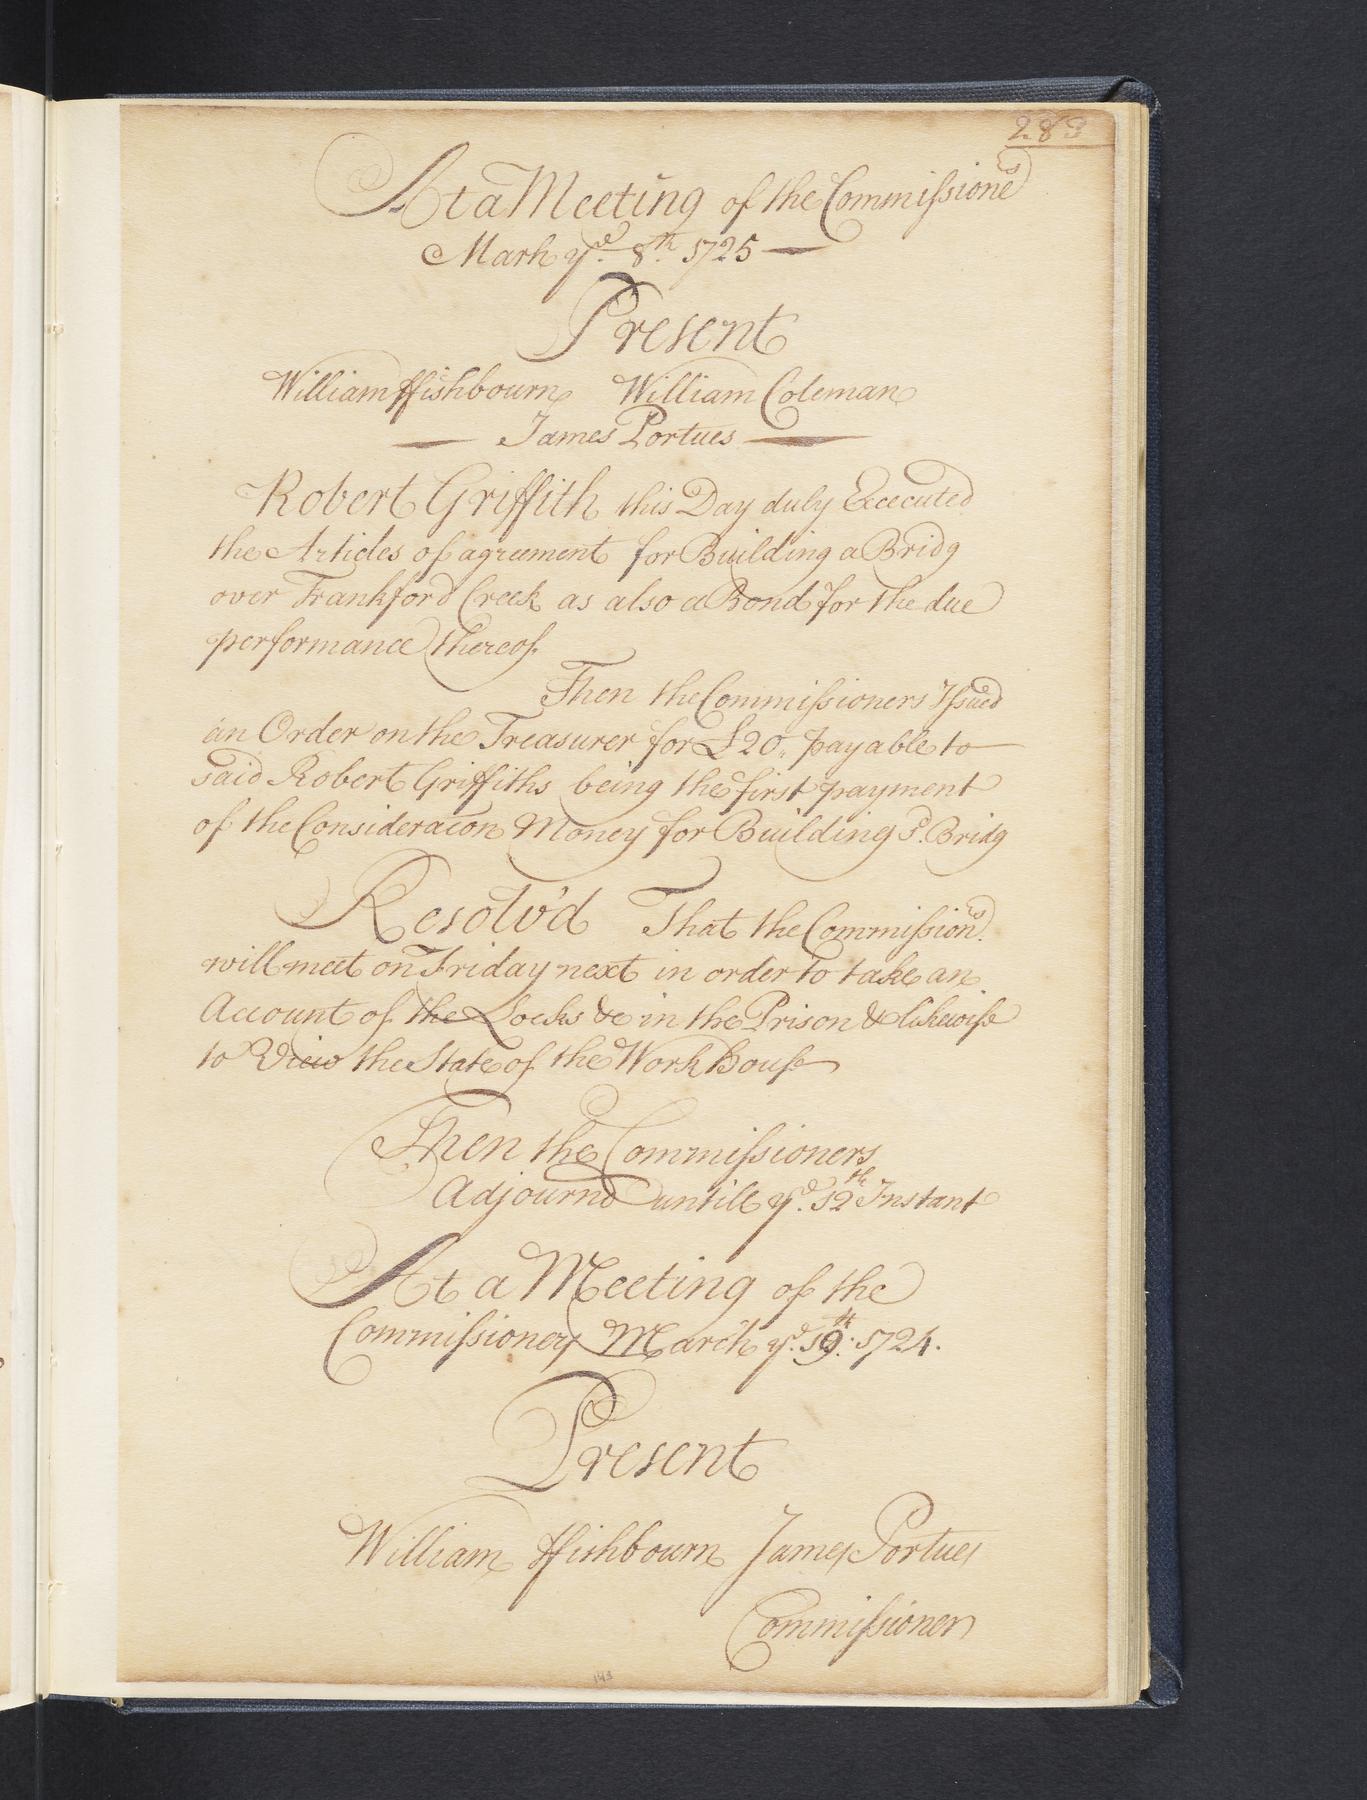 283
At a Meeting of the Commissioners
Marh ye. 8th. 1725
Present
William ffishbourn William Coleman
James Portues
Robert Griffith this Day duly Executed
the Articles of agreement for Building a Bridg
over Frankford Creek as also a Bond for the due
performance thereof.
Then the Commissioners Issued
an Order on the Treasurer for £20,, payable to
said Robert Griffiths being the first payment
of the Consideracon Money for Building sd. Bridg
Resolv'd That the Commissionrs.
will meet on Friday next in order to take an
Account of the Locks &c in the Prison & likewise
to View the State of the Work house
Then the Commissioners
Adjournd untill ye. 12th Instant
At a Meeting of the
Commissioners March ye. 19th. 1724.
Present
William ffishbourn James Portues
Commissioners
143